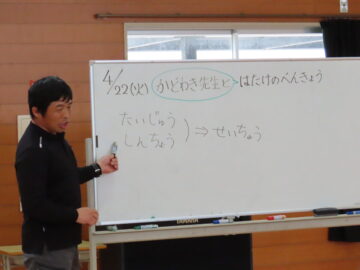 4/22(火) かどわき先生と はたけのべんきょう
たいじゅう
しんちょう
⇒ せいちょう